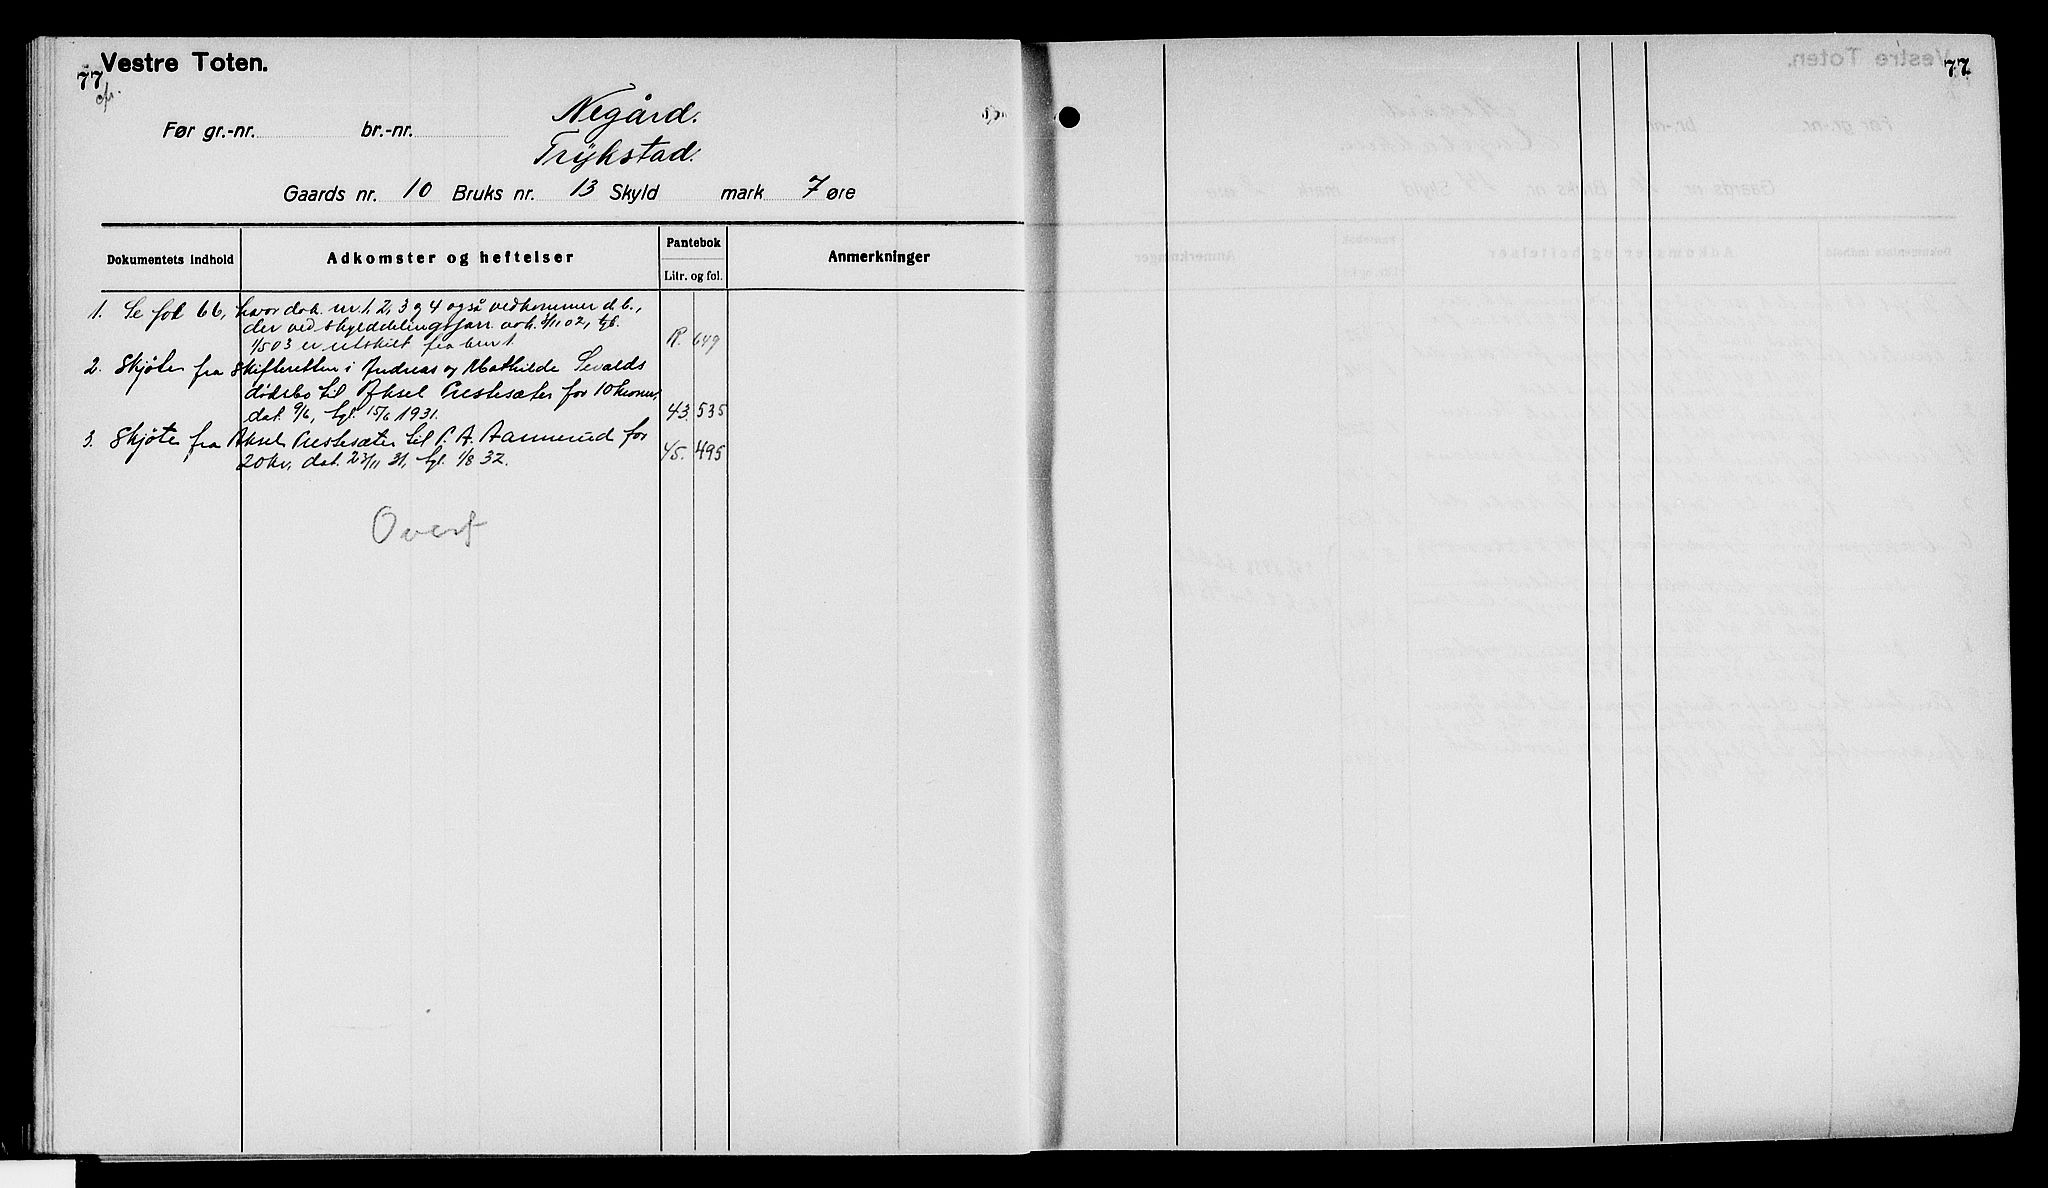 Vestre Toten.
77
cfr.
Negård.
Før gr.-nr. br.-nr.
Trykstad.
Gaards nr. 10 Bruks nr. 13 Skyld mark 7 øre
Dokumentets indhold Adkomster og heftelser Pantebok Litr. og fol. Anmerkninger
1. Se fol 66, hvor dok. nr. 1, 2, 3 og 4 også vedkommer d. b.,
der ved skylddelingsforr. avh. 3/11 02, tgl.
1/5 03 er utskilt fra br nr 1. R. 649
2. Skjøte fra Skifteretten i Andreas og Mathilde Sevalds
dødsbo til Aksel Prestesæter for 10 kroner,
dat. 9/6, tgl. 15/6 1931. 43. 535
3. Skjøte fra Aksel Prestesæter til P. A. Aannerud for
20 kr., dat. 23/11 31, tgl. 1/8 32. 45. 495
Overf
77